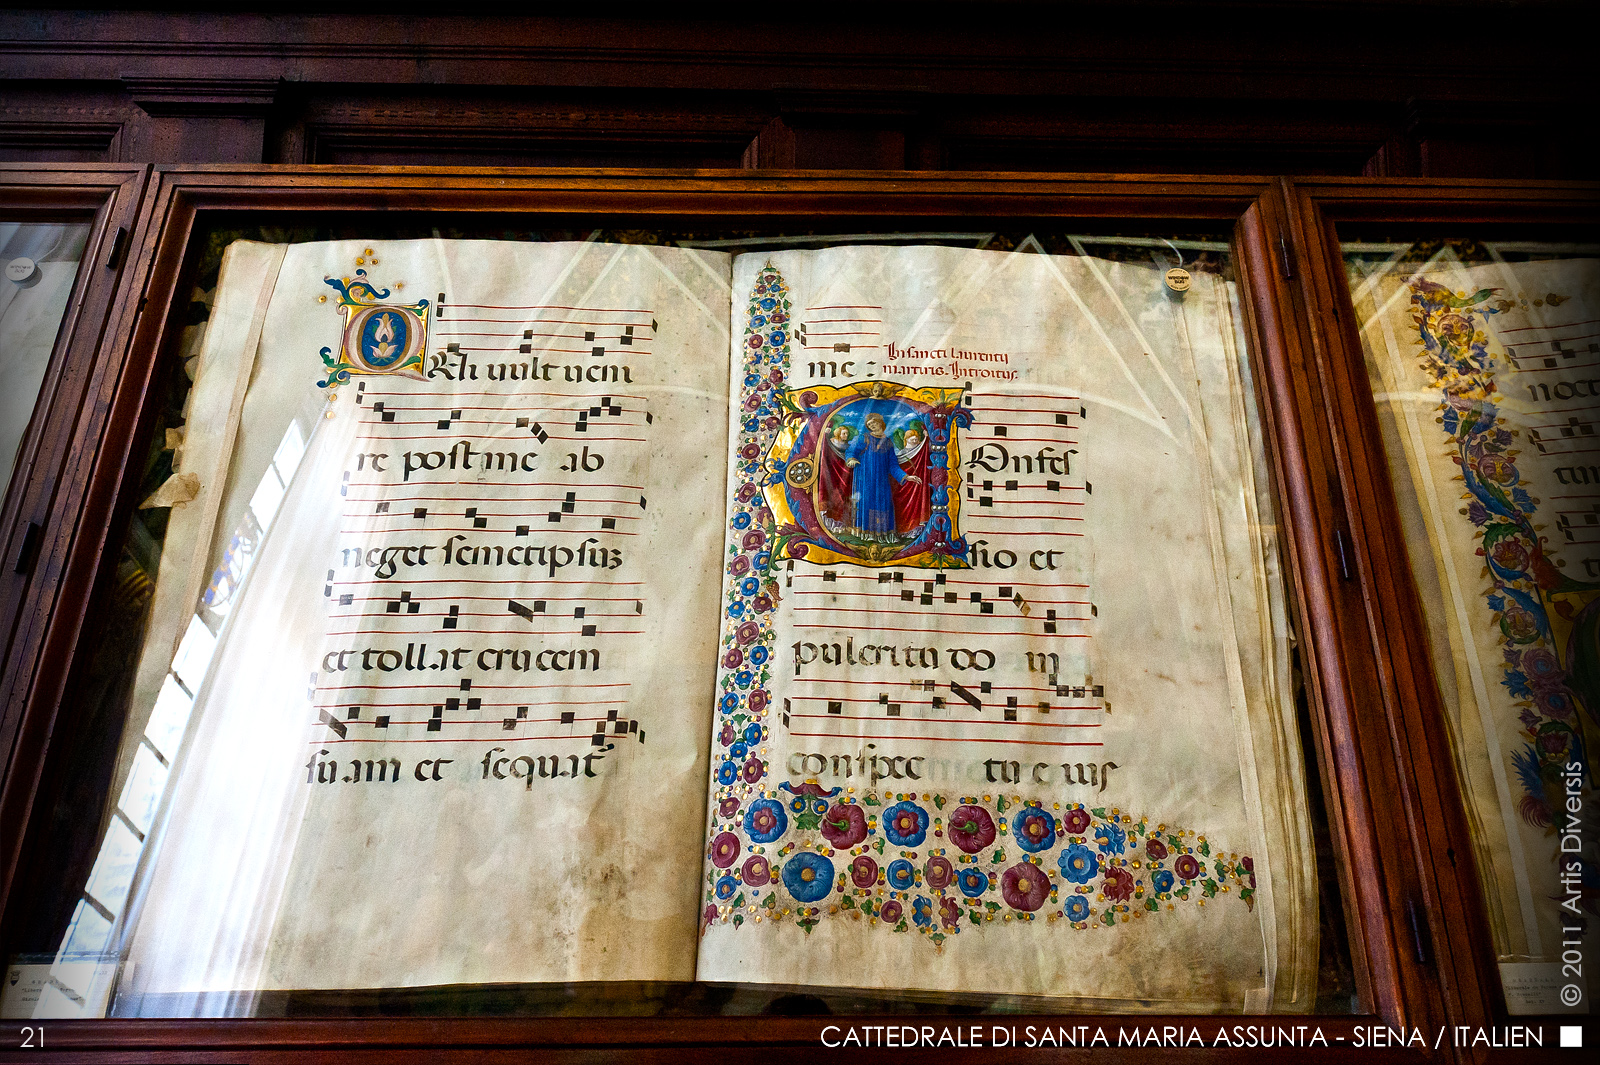 Qui vult veni
re post me ab
neget semetipsuz
et tollat crucem
suam et sequat̃
me :
In sancti laurentii
martiris. Introitus.
Confes
sio et
pulcritudo in
conspectu eius
noct
21
CATTEDRALE DI SANTA MARIA ASSUNTA - SIENA / ITALIEN
© 2011 Artis Diversis